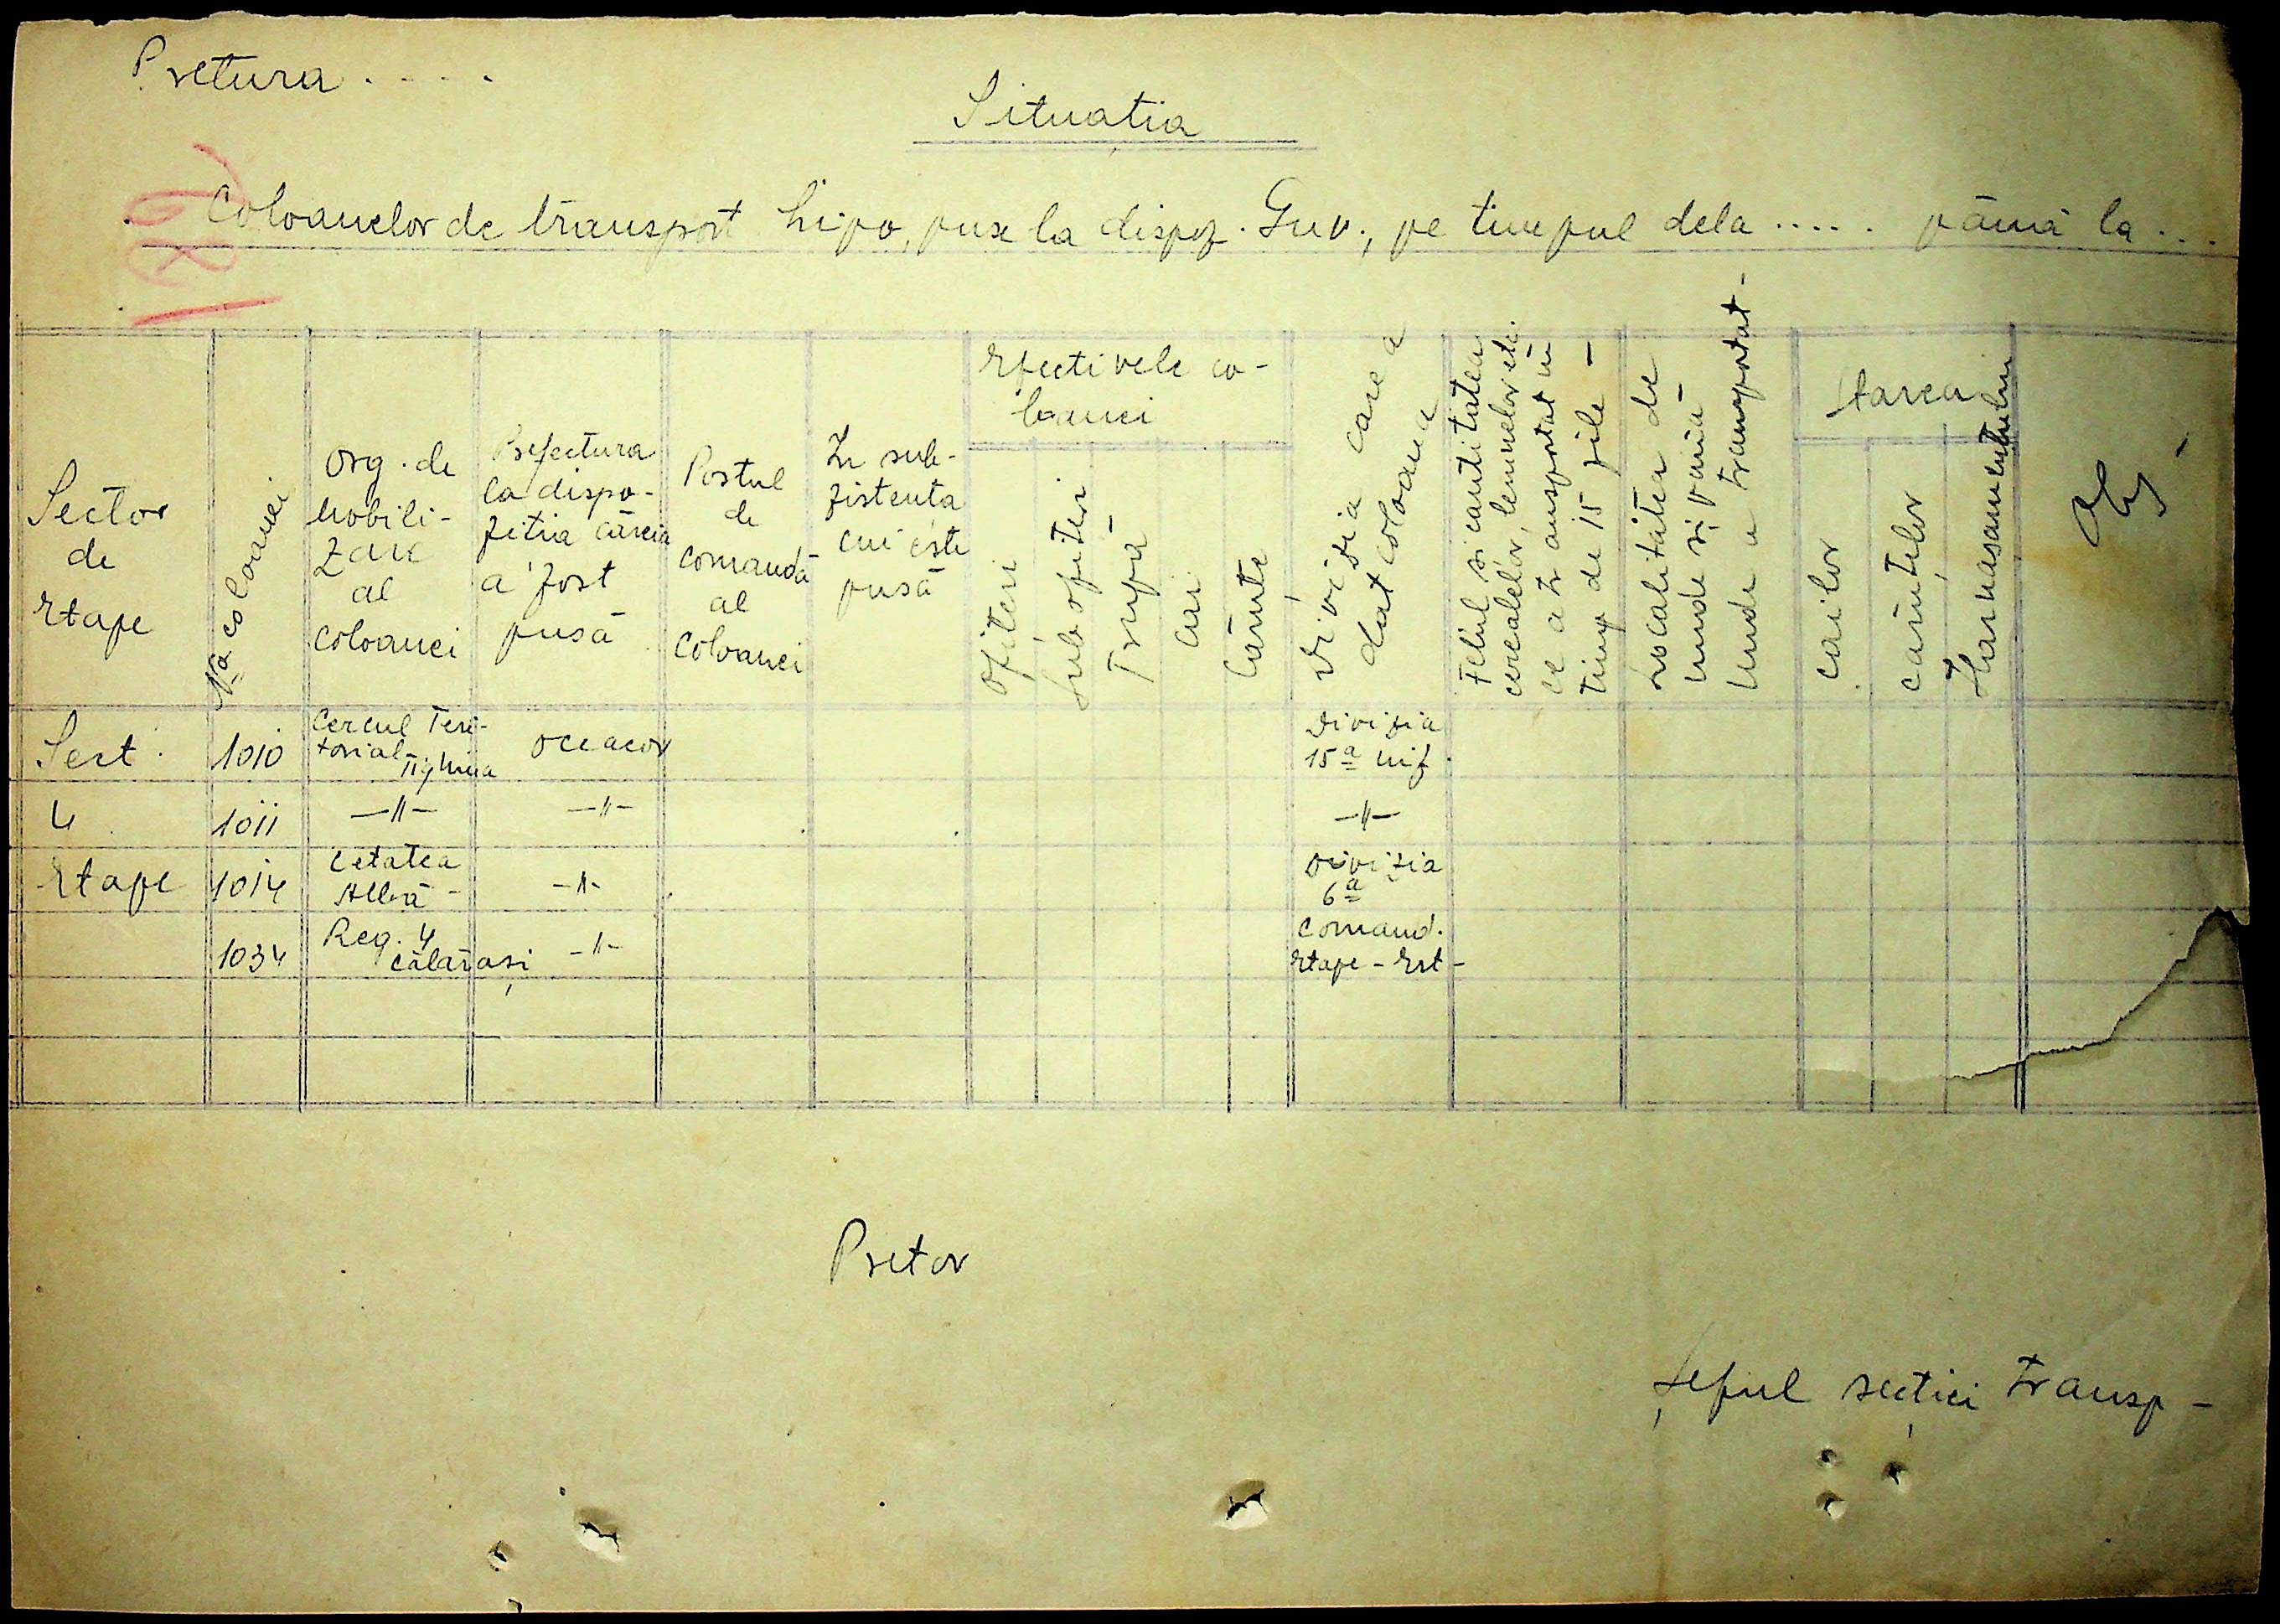 Pretura . . . . .
Situația
Coloanelor de transport hipo, puse la dispoz. Guv., pe timpul dela ..... până la ...
Sector
de
Etape
No coloanei
Org. de
Mobili-
zare
al
coloanei
Prefectura
la dispo-
ziția căreia
a fost
pusă
Postul
de
comandă
al
coloanei
În sub-
zistența
cui este
pusă
Efectivele co-
loanei
Ofițeri
Subofițeri
Trupă
Cai
Căruțe
Divizia care a
dat coloana
Felul și cantitatea
cerealelor, lemnelor etc.
ce a transportat în
timp de 15 zile -
Localitatea de
unde și până
unde a transportat -
Starea
cailor
căruțelor
Harnasamentului
Obs -
Sect. 1010 Cercul Teri-
torial Tighina Oceacov Divizia
15ª inf.
4 1011 -"- -"- -"-
Etape 1014 Cetatea
Albă - -"- Divizia
6ª
1034 Reg. 4
călărași -"- Comand.
Etape - Est -
Pretor
Șeful secției transp -